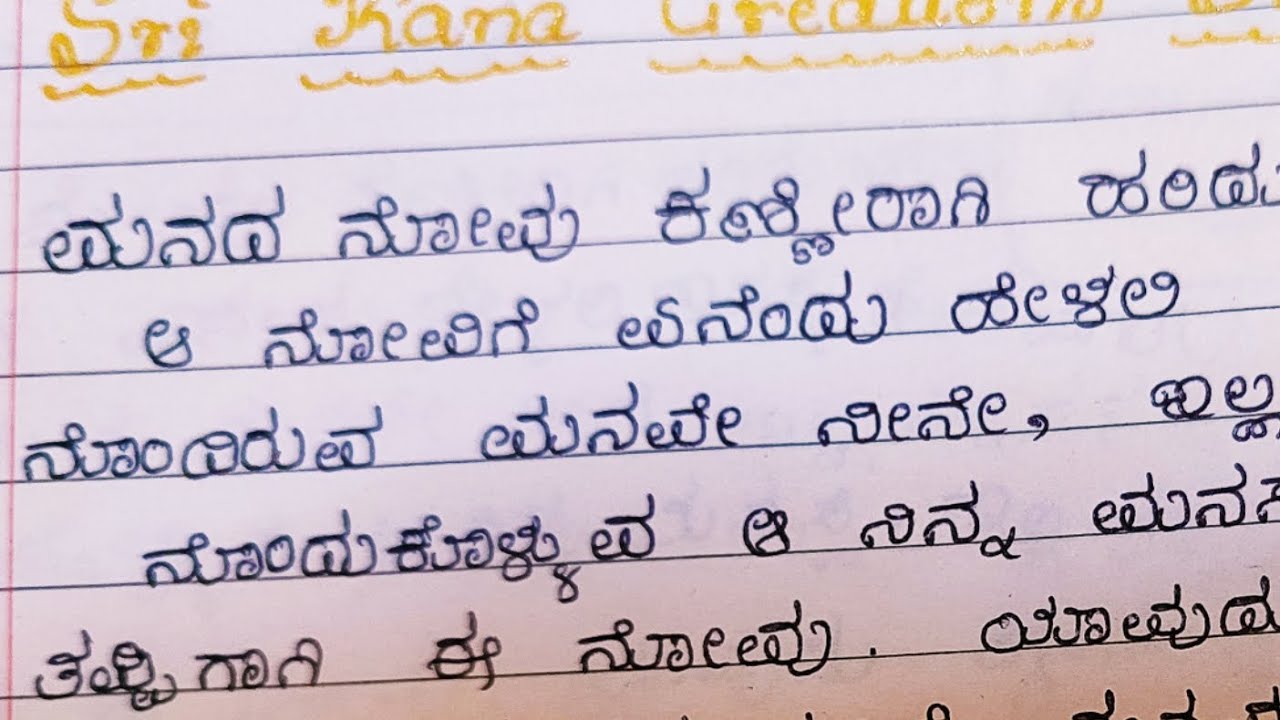 Sri Kana Creations
ಮನದ ನೋವು ಕಣ್ಣೀರಾಗಿ ಹರಿದು
ಆ ನೋವಿಗೆ ಏನೆಂದು ಹೇಳಲಿ
ನೊಂದಿರುವ ಮನವೇ ನೀನೇ, ಇಲ್ಲ
ನೊಂದುಕೊಳ್ಳುವ ಆ ನಿನ್ನ ಮನಸ
ತಪ್ಪಿಗಾಗಿ ಈ ನೋವು. ಯಾವುದ